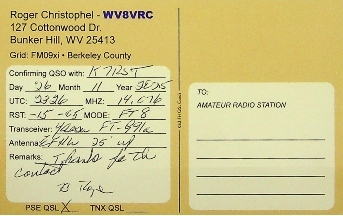 Roger Christophel - WV8VRC
127 Cottonwood Dr.
Bunker Hill, WV 25413
Grid: FM09xi • Berkeley County
Confirming QSO with: K7IZST
Day 26 Month 11 Year 2025
UTC: 2326 MHZ: 14.076
RST: -15 -05 MODE: FT8
Transceiver: Yaesu FT-891a
Antenna: EFHW 25' up
Remarks: Thanks for the
contact
PSE QSL X TNX QSL
TO:
AMATEUR RADIO STATION